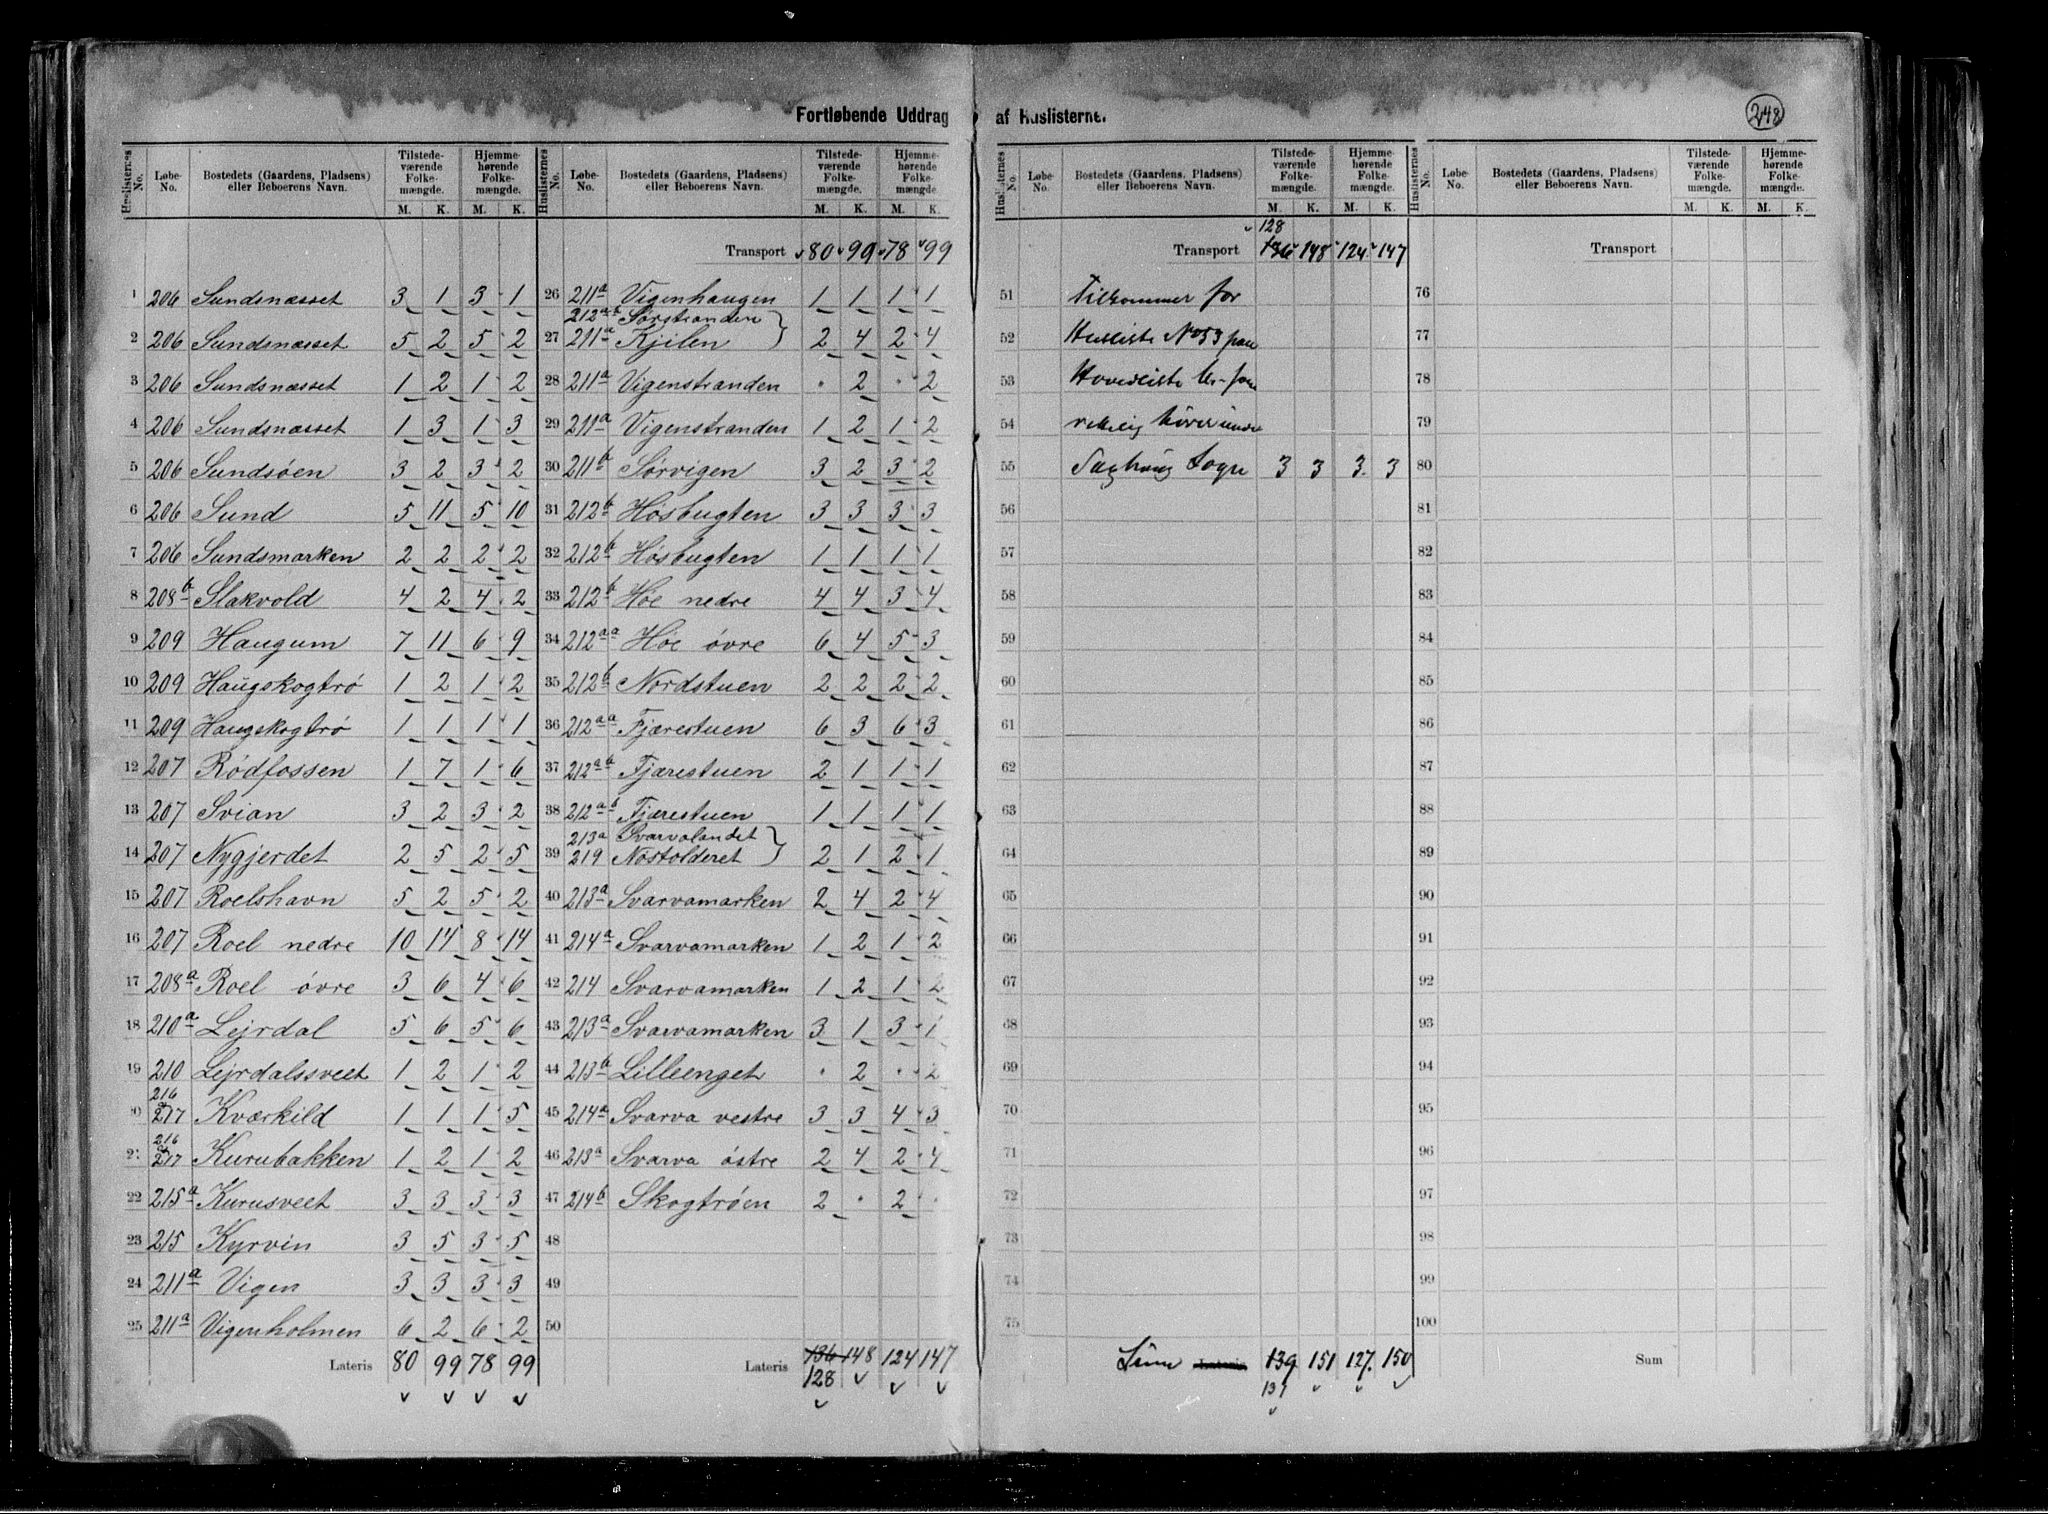 Fortløbende Uddrag af Huslisterne.
248
Huslisternes No. Løbe-No. Bostedets (Gaardens, Pladsens) eller Beboerens Navn. Tilstedeværende Folkemængde. M. K. Hjemmehørende Folkemængde. M. K.
1 206 Sundsnæsset 3 1 3 1
2 206 Sundsnæsset 5 2 5 2
3 206 Sundsnæsset 1 2 1 2
4 206 Sundsnæsset 1 3 1 3
5 206 Sundsøen 3 2 3 2
6 206 Sund 5 11 5 10
7 206 Sundsmarken 2 2 2 2
8 208b Slakvold 4 2 4 2
9 209 Haugum 7 11 6 9
10 209 Haugskogtrø 1 2 1 2
11 209 Haugskogtrø 1 1 1 1
12 207 Rødfossen 1 7 1 6
13 207 Svian 3 2 3 2
14 207 Nygjerdet 2 5 2 5
15 207 Roelshavn 5 2 5 2
16 207 Roel nedre 10 14 8 14
17 208a Roel øvre 3 6 4 6
18 210a Lejrdal 5 6 5 6
19 210 Lejrdalssveet 1 2 1 2
20 216 217 Kværkild 1 1 1 5
21 216 217 Kurubakken 1 2 1 2
22 215a Kurusveet 3 3 3 3
23 215 Kyrvin 3 5 3 5
24 211a Vigen 3 3 3 3
25 211a Vigenholmen 6 2 6 2
Lateris 80 99 78 99
Huslisternes No. Løbe-No. Bostedets (Gaardens, Pladsens) eller Beboerens Navn. Tilstedeværende Folkemængde. M. K. Hjemmehørende Folkemængde. M. K.
Transport 80 99 78 99
26 211a Vigenhaugen 1 1 1 1
212a Sørstranden
27 211a Kjilen 2 4 2 4
28 211a Vigenstranden 2 2
29 211a Vigenstranden 1 2 1 2
30 211b Sørvigen 3 2 3 2
31 212b Høsbugten 3 3 3 3
32 212b Høsbugten 1 1 1 1
33 212b Høe nedre 4 4 3 4
34 212aa Høe øvre 6 4 5 3
35 212b Nordstuen 2 2 2 2
36 212aa Fjærestuen 6 3 6 3
37 212a Fjærestuen 2 1 1 1
38 212ab Fjærestuen 1 1 1 1
213a Svarvalandet
39 219 Nøstolderet 2 1 2 1
40 213a Svarvamarken 2 4 2 4
41 214a Svarvamarken 1 2 1 2
42 214 Svarvamarken 1 2 1 2
43 213a Svarvamarken 3 1 3 1
44 213b Lilleenget 2 2
45 214a Svarva vestre 3 3 4 3
46 213a Svarva østre 2 4 2 4
47 214b Skogtrøen 2 2
48
49
50
Lateris 136 148 124 147
128
Huslisternes No. Løbe-No. Bostedets (Gaardens, Pladsens) eller Beboerens Navn. Tilstedeværende Folkemængde. M. K. Hjemmehørende Folkemængde. M. K.
128
Transport 136 148 124 147
51 Tilkommer for
52 Husliste No 53 paa
53 Hovedliste
54
55 Sogn 3 3 3 3
56
57
58
59
60
61
62
63
64
65
66
67
68
69
70
71
72
73
74
75
Sum Lateris 139 151 127 150
131
Huslisternes No. Løbe-No. Bostedets (Gaardens, Pladsens) eller Beboerens Navn. Tilstedeværende Folkemængde. M. K. Hjemmehørende Folkemængde. M. K.
Transport
76
77
78
79
80
81
82
83
84
85
86
87
88
89
90
91
92
93
94
95
96
97
98
99
100
Sum